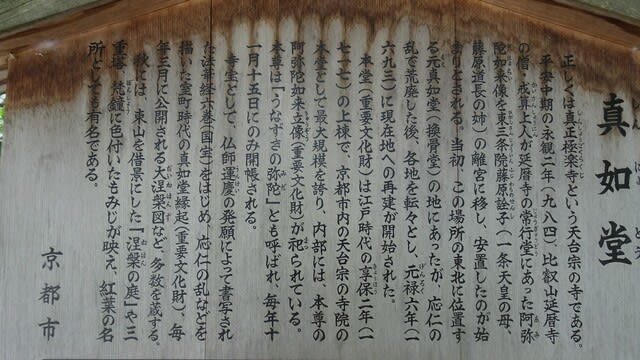 真如堂
正しくは真正極楽寺という天台宗の寺である。
平安中期の永観二年(九八四)、比叡山延暦寺
の僧・戒算上人が延暦寺の常行堂にあった阿弥
陀如来像を東三条院藤原詮子(一条天皇の母、
藤原道長の姉)の離宮に移し、安置したのが始
まりとされる。当初、この場所の東北に位置す
る元真如堂(換骨堂)の地にあったが、応仁の
乱で荒廃した後、各地を転々とし、元禄六年(一
六九三)に現在地への再建が開始された。
本堂(重要文化財)は江戸時代の享保二年(一
七一七)の上棟で、京都市内の天台宗の寺院の
本堂として最大規模を誇り、内部には、本尊の
阿弥陀如来立像(重要文化財)が祀られている。
本尊は「うなずきの弥陀」とも呼ばれ、毎年十
一月十五日にのみ開帳される。
寺宝として、仏師運慶の発願によって書写され
た法華経六巻(国宝)をはじめ、応仁の乱などを
描いた室町時代の真如堂縁起(重要文化財)、毎
年三月に公開される大涅槃図など、多数を蔵する。
秋には、東山を借景にした『涅槃の庭』や三
重塔、梵鐘に色付いたもみじが映え、紅葉の名
所としても有名である。
京都市